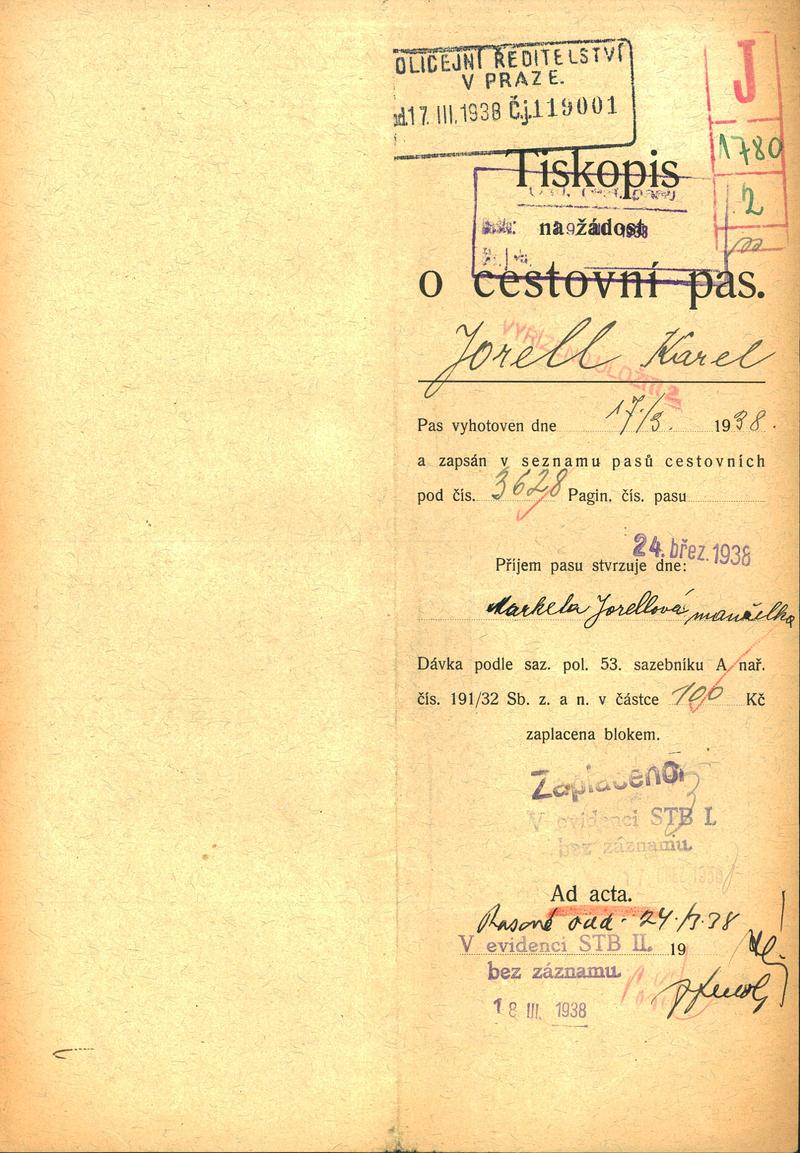 POLICEJNÍ ŘEDITELSTVÍ
V PRAZE.
17. III. 1938 Č.j. 119001
J
1780
2
Tiskopis
na žádost
1938
o cestovní pas.
VYŘÍZENO ULOŽITI
Jorell Karel
Pas vyhotoven dne 17/3. 1938.
a zapsán v seznamu pasů cestovních
pod čís. 3628 Pagin. čís. pasu
24. břez. 1938
Příjem pasu stvrzuje dne:
Marketa Jorellová manželka
Dávka podle saz. pol. 53. sazebníku A nař.
čís. 191/32 Sb. z. a n. v částce 100 Kč
zaplacena blokem.
Zaplaceno
V evidenci STB I.
bez záznamu.
Ad acta.
24./3.38
V evidenci STB II. 19
bez záznamu.
18 III. 1938